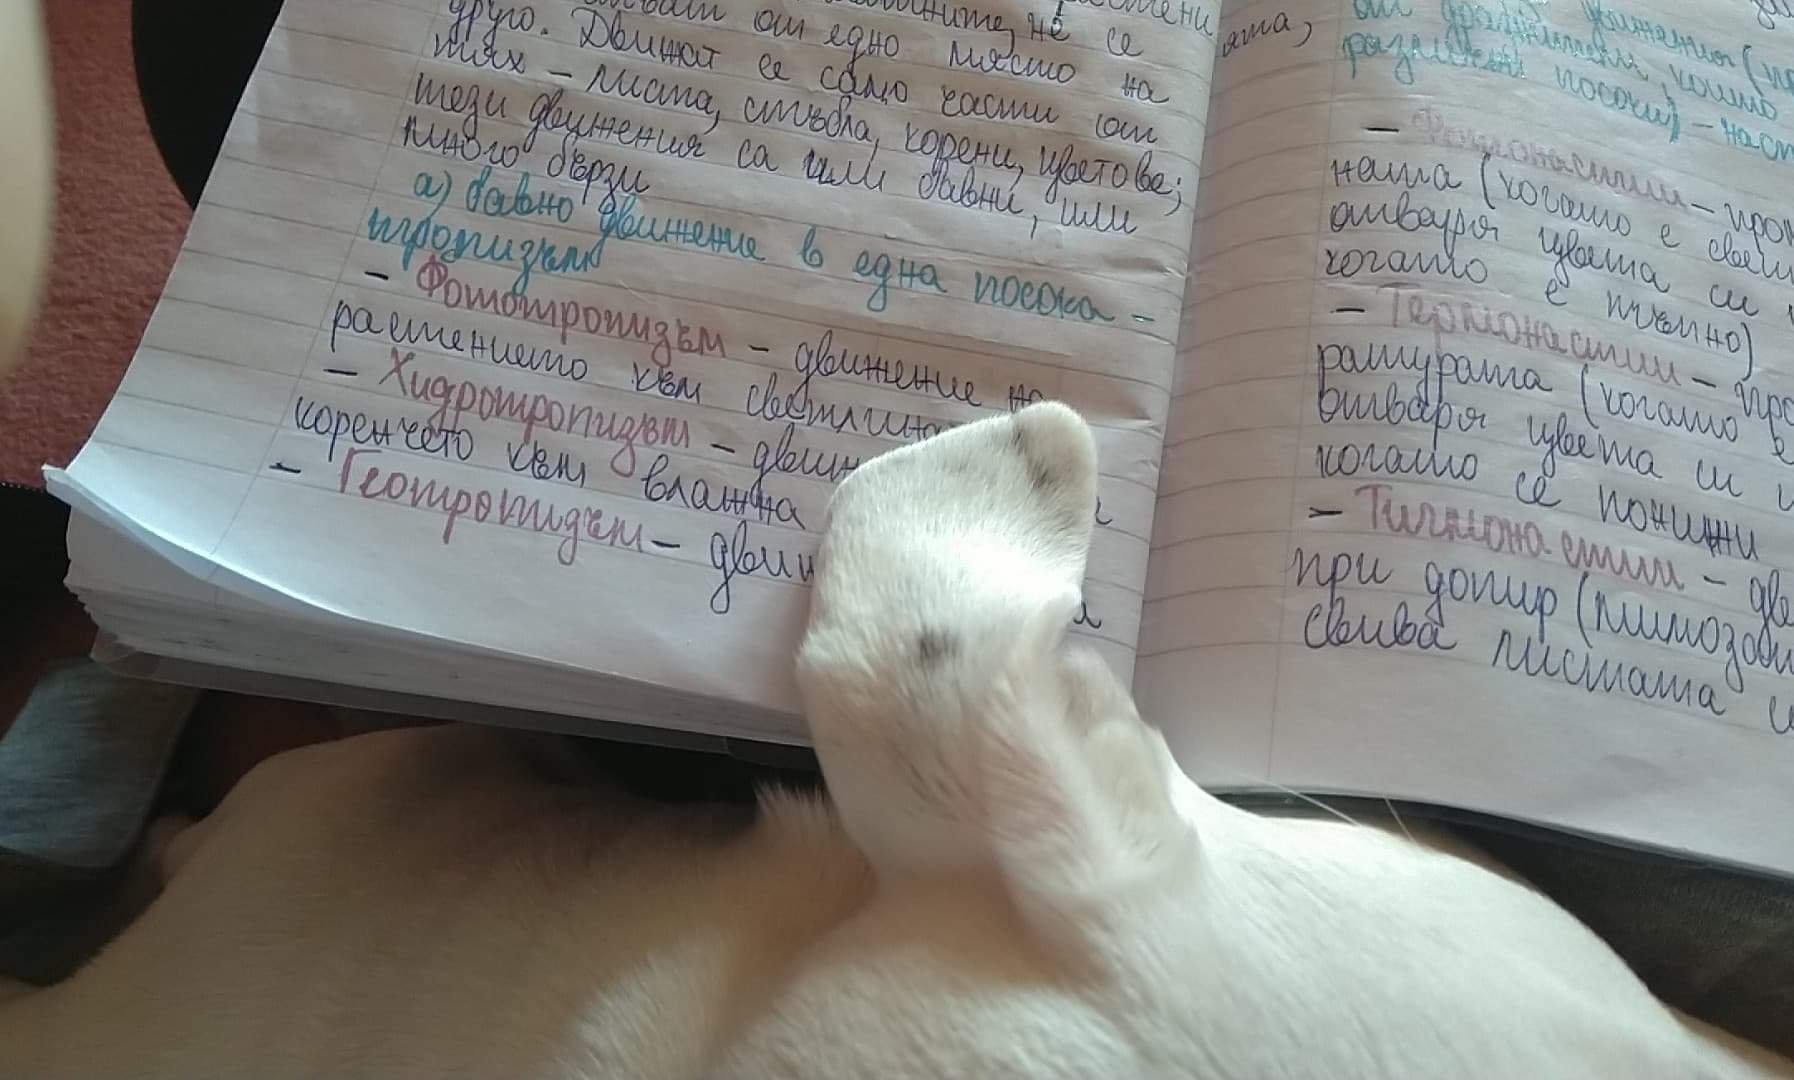 от едно място на
друго. Движат се само части от
тях – листа, стъбла, корени, цветове;
тези движения са или бавни, или
много бързи
а) бавно движение в една посока –
тропизъм
– Фототропизъм – движение на
растението към светлина
– Хидротропизъм –
коренчето към влажна
– Геотропизъм –
посоки) – наст
– Фотонастии –
ната (когато е
отваря цвета си
когато е тъмно)
– Термонастии –
ратурата (когато
отваря цвета си
когато се понижи
– Тигмонастии –
при допир (
свива листата